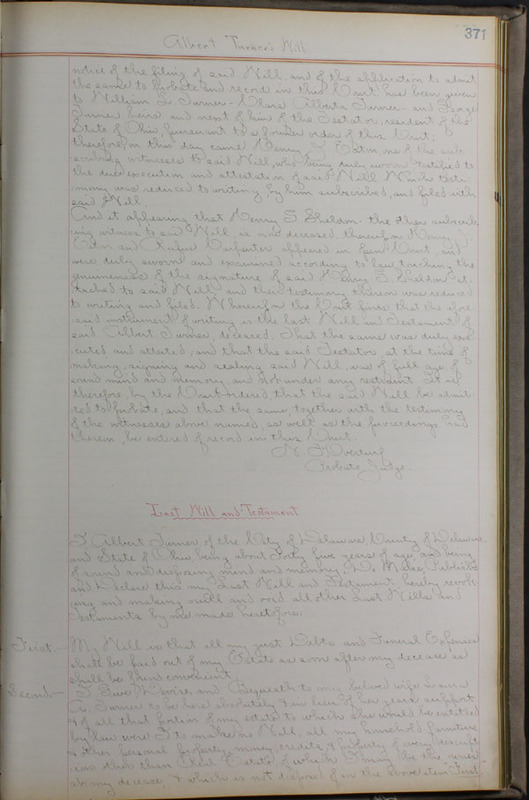 371
Albert Turner's Will
notice of the filing of said Will, and of the application to admit
the same to probate and record in this Court has been given
to William L. Turner - Clara Alberta Turner - and George
Turner heirs and next of kin of the Testator, resident of the
State of Ohio, pursuant to a former order of this Court:
therefore on this day came Henry J. Eaton, one of the sub-
scribing witnesses to said Will, who being duly sworn testified to
the due execution and attestation of said Will Which testi-
mony was reduced to writing, by him subscribed, and filed with
said Will.
And it appearing that Henry S. Sheldon the other subscrib-
ing witness to said Will is now deceased, thereupon Henry J.
Eaton and Rufus Carpenter appeared in open Court, and
were duly sworn and examined according to law touching the
genuineness of the signature of said Henry S. Sheldon at-
tached to said Will and their testimony thereon was reduced
to writing and filed. Whereupon the Court finds that the afore-
said instrument of writing is the last Will and Testament of
said Albert Turner, deceased. That the same was duly exe-
cuted and attested, and that the said Testator, at the time of
making, signing and sealing said Will, was of full age of
sound mind and memory, and not under any restraint. It is
therefore, by the Court ordered that the said Will be admit-
ted to probate, and that the same, together with the testimony
of the witnesses above named, as well as the proceedings had
therein, be entered of record in this Court.
Overturf
Probate Judge.
Last Will and Testament
I Albert Turner of the City of Delaware County of Delaware
and State of Ohio being about Forty five years of age, and being
of sound and disposing mind and memory, Do Make Publish
and Declare this my Last Will and Testament: hereby revok-
ing and making null and void all other Last Wills and
Testaments by me made heretofore.
First. - My Will is that all my just Debts and Funeral Expenses
shall be paid out of my Estate as soon after my decease as
shall be found convenient.
Second - I Give Devise and Bequeath to my beloved wife Laura
A. Turner to be hers absolutely & in lieu of her years support
& of all that portion of my estate to which she would be entitled
by law were I to make no Will, all my household furniture
& other personal property, money, credits, & property of every descrip-
tion other than Real Estate, of which I may be the owner
at my decease, & which is not disposed of in the above item First.